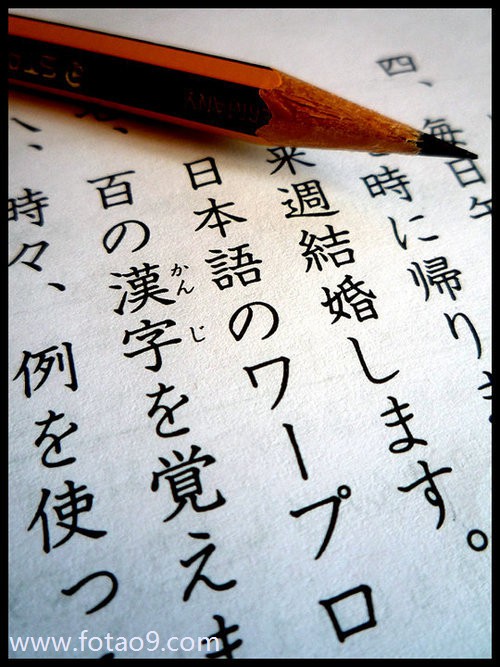 四、毎日午
時に帰りま
来週結婚します。
日本語のワープロ
百の漢字を覚えま
かんじ
時々、例を使っ
www.fotao9.com